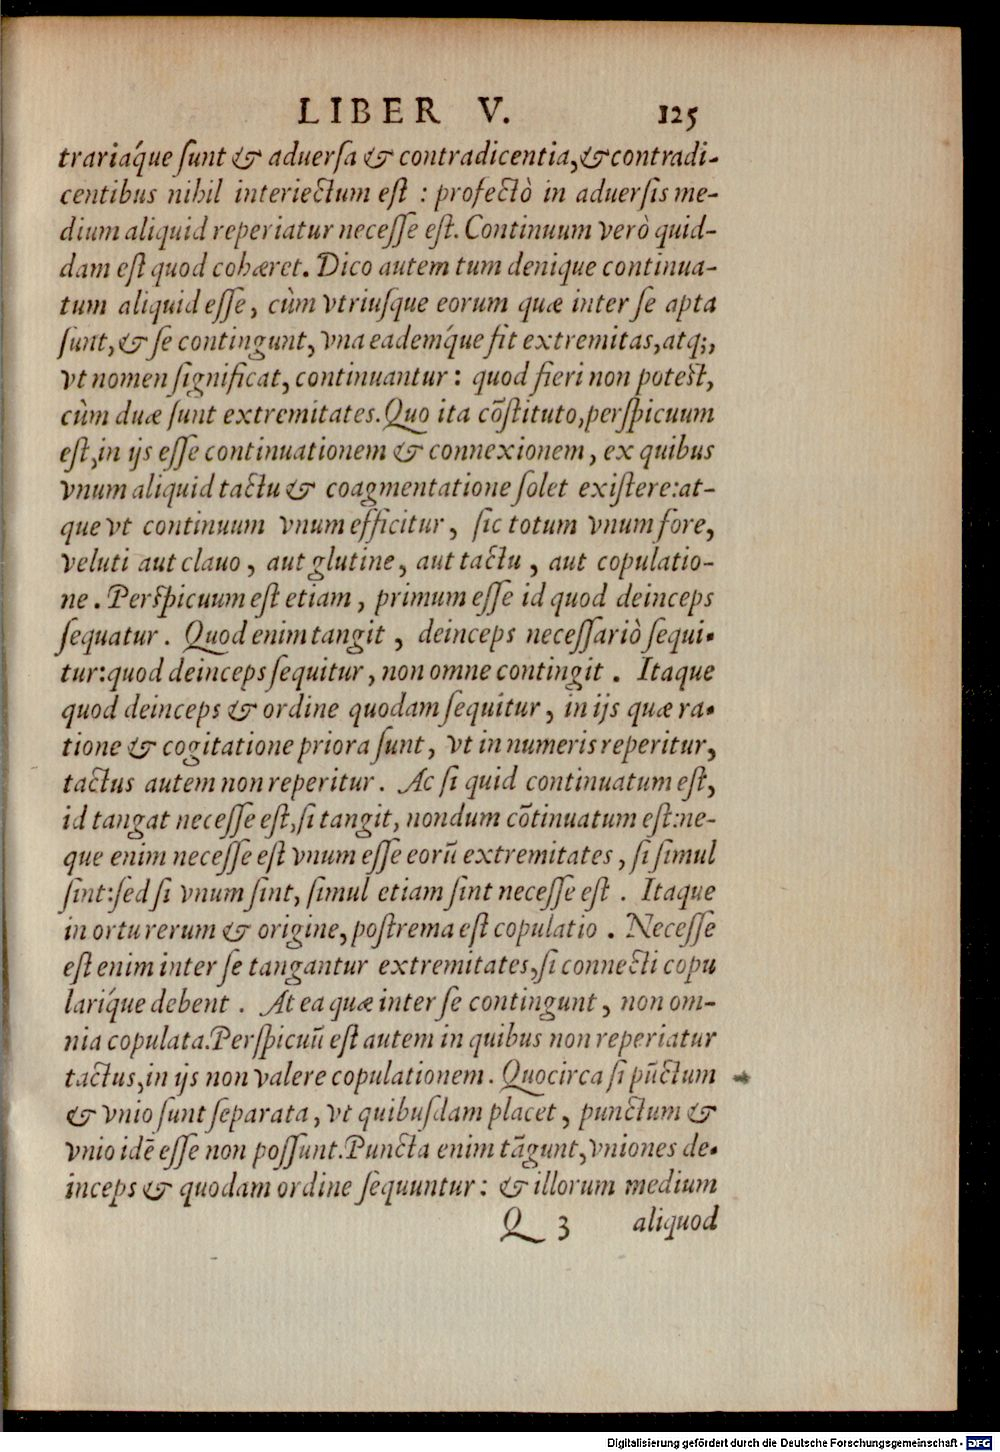 LIBER V. 125
trariáque ſunt & aduerſa & contradicentia, & contradi-
centibus nihil interiectum eſt : profectò in aduerſis me-
dium aliquid reperiatur neceſſe eſt. Continuum verò quid-
dam eſt quod cohæret. Dico autem tum denique continua-
tum aliquid eſſe, cùm vtriuſque eorum quæ inter ſe apta
ſunt, & ſe contingunt, vna eadémque fit extremitas, atq;,
vt nomen ſignificat, continuantur : quod fieri non poteſt,
cùm duæ ſunt extremitates. Quo ita cōſtituto, perſpicuum
eſt, in ijs eſſe continuationem & connexionem, ex quibus
vnum aliquid tactu & coagmentatione ſolet exiſtere: at-
que vt continuum vnum efficitur, ſic totum vnum fore,
veluti aut clauo, aut glutine, aut tactu, aut copulatio-
ne. Perſpicuum eſt etiam, primum eſſe id quod deinceps
ſequatur. Quod enim tangit, deinceps neceſſariò ſequi-
tur: quod deinceps ſequitur, non omne contingit. Itaque
quod deinceps & ordine quodam ſequitur, in ijs quæ ra-
tione & cogitatione priora ſunt, vt in numeris reperitur,
tactus autem non reperitur. Ac ſi quid continuatum eſt,
id tangat neceſſe eſt, ſi tangit, nondum cōtinuatum eſt: ne-
que enim neceſſe eſt vnum eſſe eorū extremitates, ſi ſimul
ſint: ſed ſi vnum ſint, ſimul etiam ſint neceſſe eſt. Itaque
in ortu rerum & origine, poſtrema eſt copulatio. Neceſſe
eſt enim inter ſe tangantur extremitates, ſi connecti copu
laríque debent. At ea quæ inter ſe contingunt, non om-
nia copulata. Perſpicuū eſt autem in quibus non reperiatur
tactus, in ijs non valere copulationem. Quocirca ſi pūctum
& vnio ſunt ſeparata, vt quibuſdam placet, punctum &
vnio idē eſſe non poſſunt. Puncta enim tāgunt, vniones de-
inceps & quodam ordine ſequuntur: & illorum medium
Q 3 aliquod
Digitalisierung gefördert durch die Deutsche Forschungsgemeinschaft - DFG